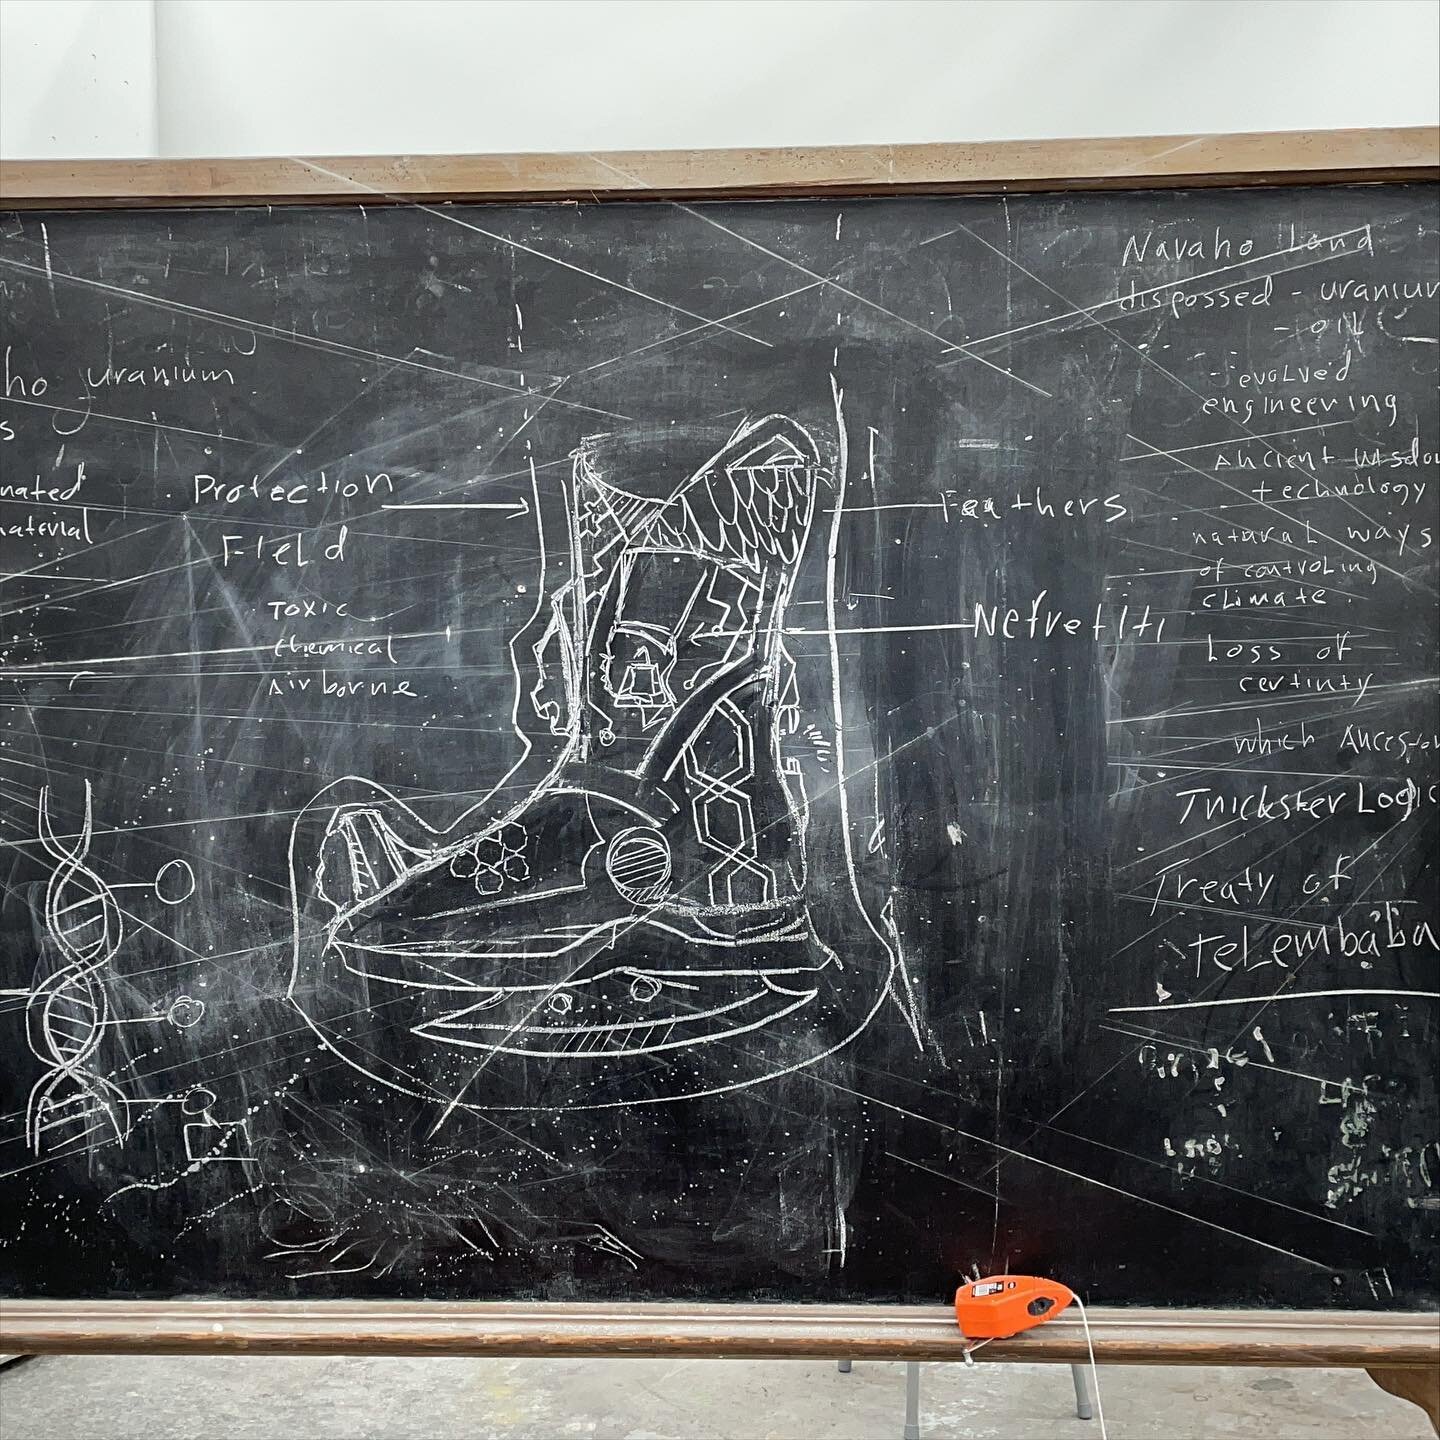 ho uranium
s
nated
material
Protection
Field
Toxic
chemical
Airborne
Feathers
Nefretiti
Navaho Land
dispossed - uranium
- oil
- evolved
engineering
Ancient wisdo
technology
natural ways
of controling
climate.
Loss of
certinty
which Ancest
Trickster Logic
Treaty of
Telembaba